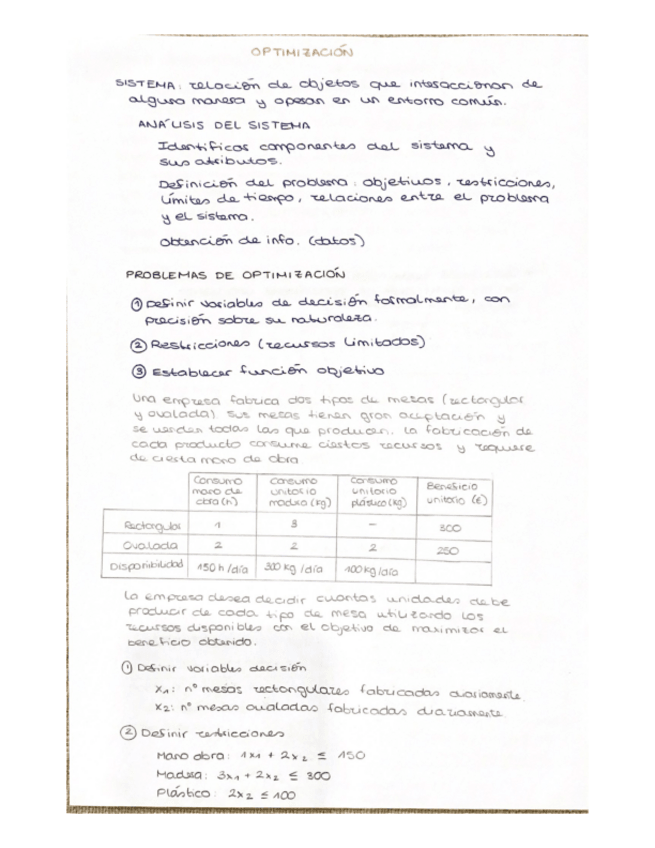 OPTIMIZACIÓN
SISTEMA: relación de objetos que interaccionan de
alguna manera y operan en un entorno común.
ANÁLISIS DEL SISTEMA
Identificar componentes del sistema y
sus atributos.
Definición del problema: objetivos, restricciones,
límites de tiempo, relaciones entre el problema
y el sistema.
Obtención de info. (datos)
PROBLEMAS DE OPTIMIZACIÓN
① Definir variables de decisión formalmente, con
precisión sobre su naturaleza.
② Restricciones (recursos limitados)
③ Establecer función objetivo
Una empresa fabrica dos tipos de mesas (rectangular
y ovalada). Sus mesas tienen gran aceptación y
se venden todas las que producen. La fabricación de
cada producto consume ciertos recursos y requiere
de cierta mano de obra.
Consumo mano de obra (h) Consumo unitario madera (kg) Consumo unitario plástico (kg) Beneficio unitario (€)
Rectangular 1 3 - 300
Ovalada 2 2 2 250
Disponibilidad 150 h/día 300 kg/día 100 kg/día
La empresa desea decidir cuantas unidades debe
producir de cada tipo de mesa utilizando los
recursos disponibles con el objetivo de maximizar el
beneficio obtenido.
① Definir variables decisión
X₁: nº mesas rectangulares fabricadas diariamente.
X₂: nº mesas ovaladas fabricadas diariamente.
② Definir restricciones
Mano obra: 1x₁ + 2x₂ ≤ 150
Madera: 3x₁ + 2x₂ ≤ 300
Plástico: 2x₂ ≤ 100